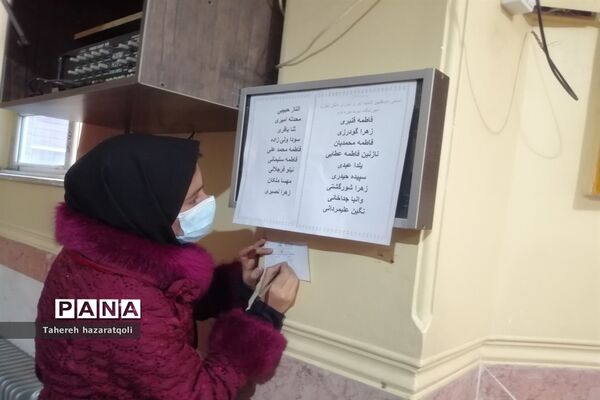 فاطمه قنبری
زهرا گودرزی
فاطمه محمدیان
نازنین فاطمه عطایی
یلدا عبدی
سپیده حیدری
زهرا شورگشتی
وانیا جداخانی
نگین علیمردانی
الناز حبیبی
محدثه امیری
ثنا باقری
سونا ولی زاده
فاطمه محمد علی
فاطمه سلیمانی
نیلو فرجلالی
مهسا ملکان
زهرا نصیری
PANA
Tahereh hazaratqoli